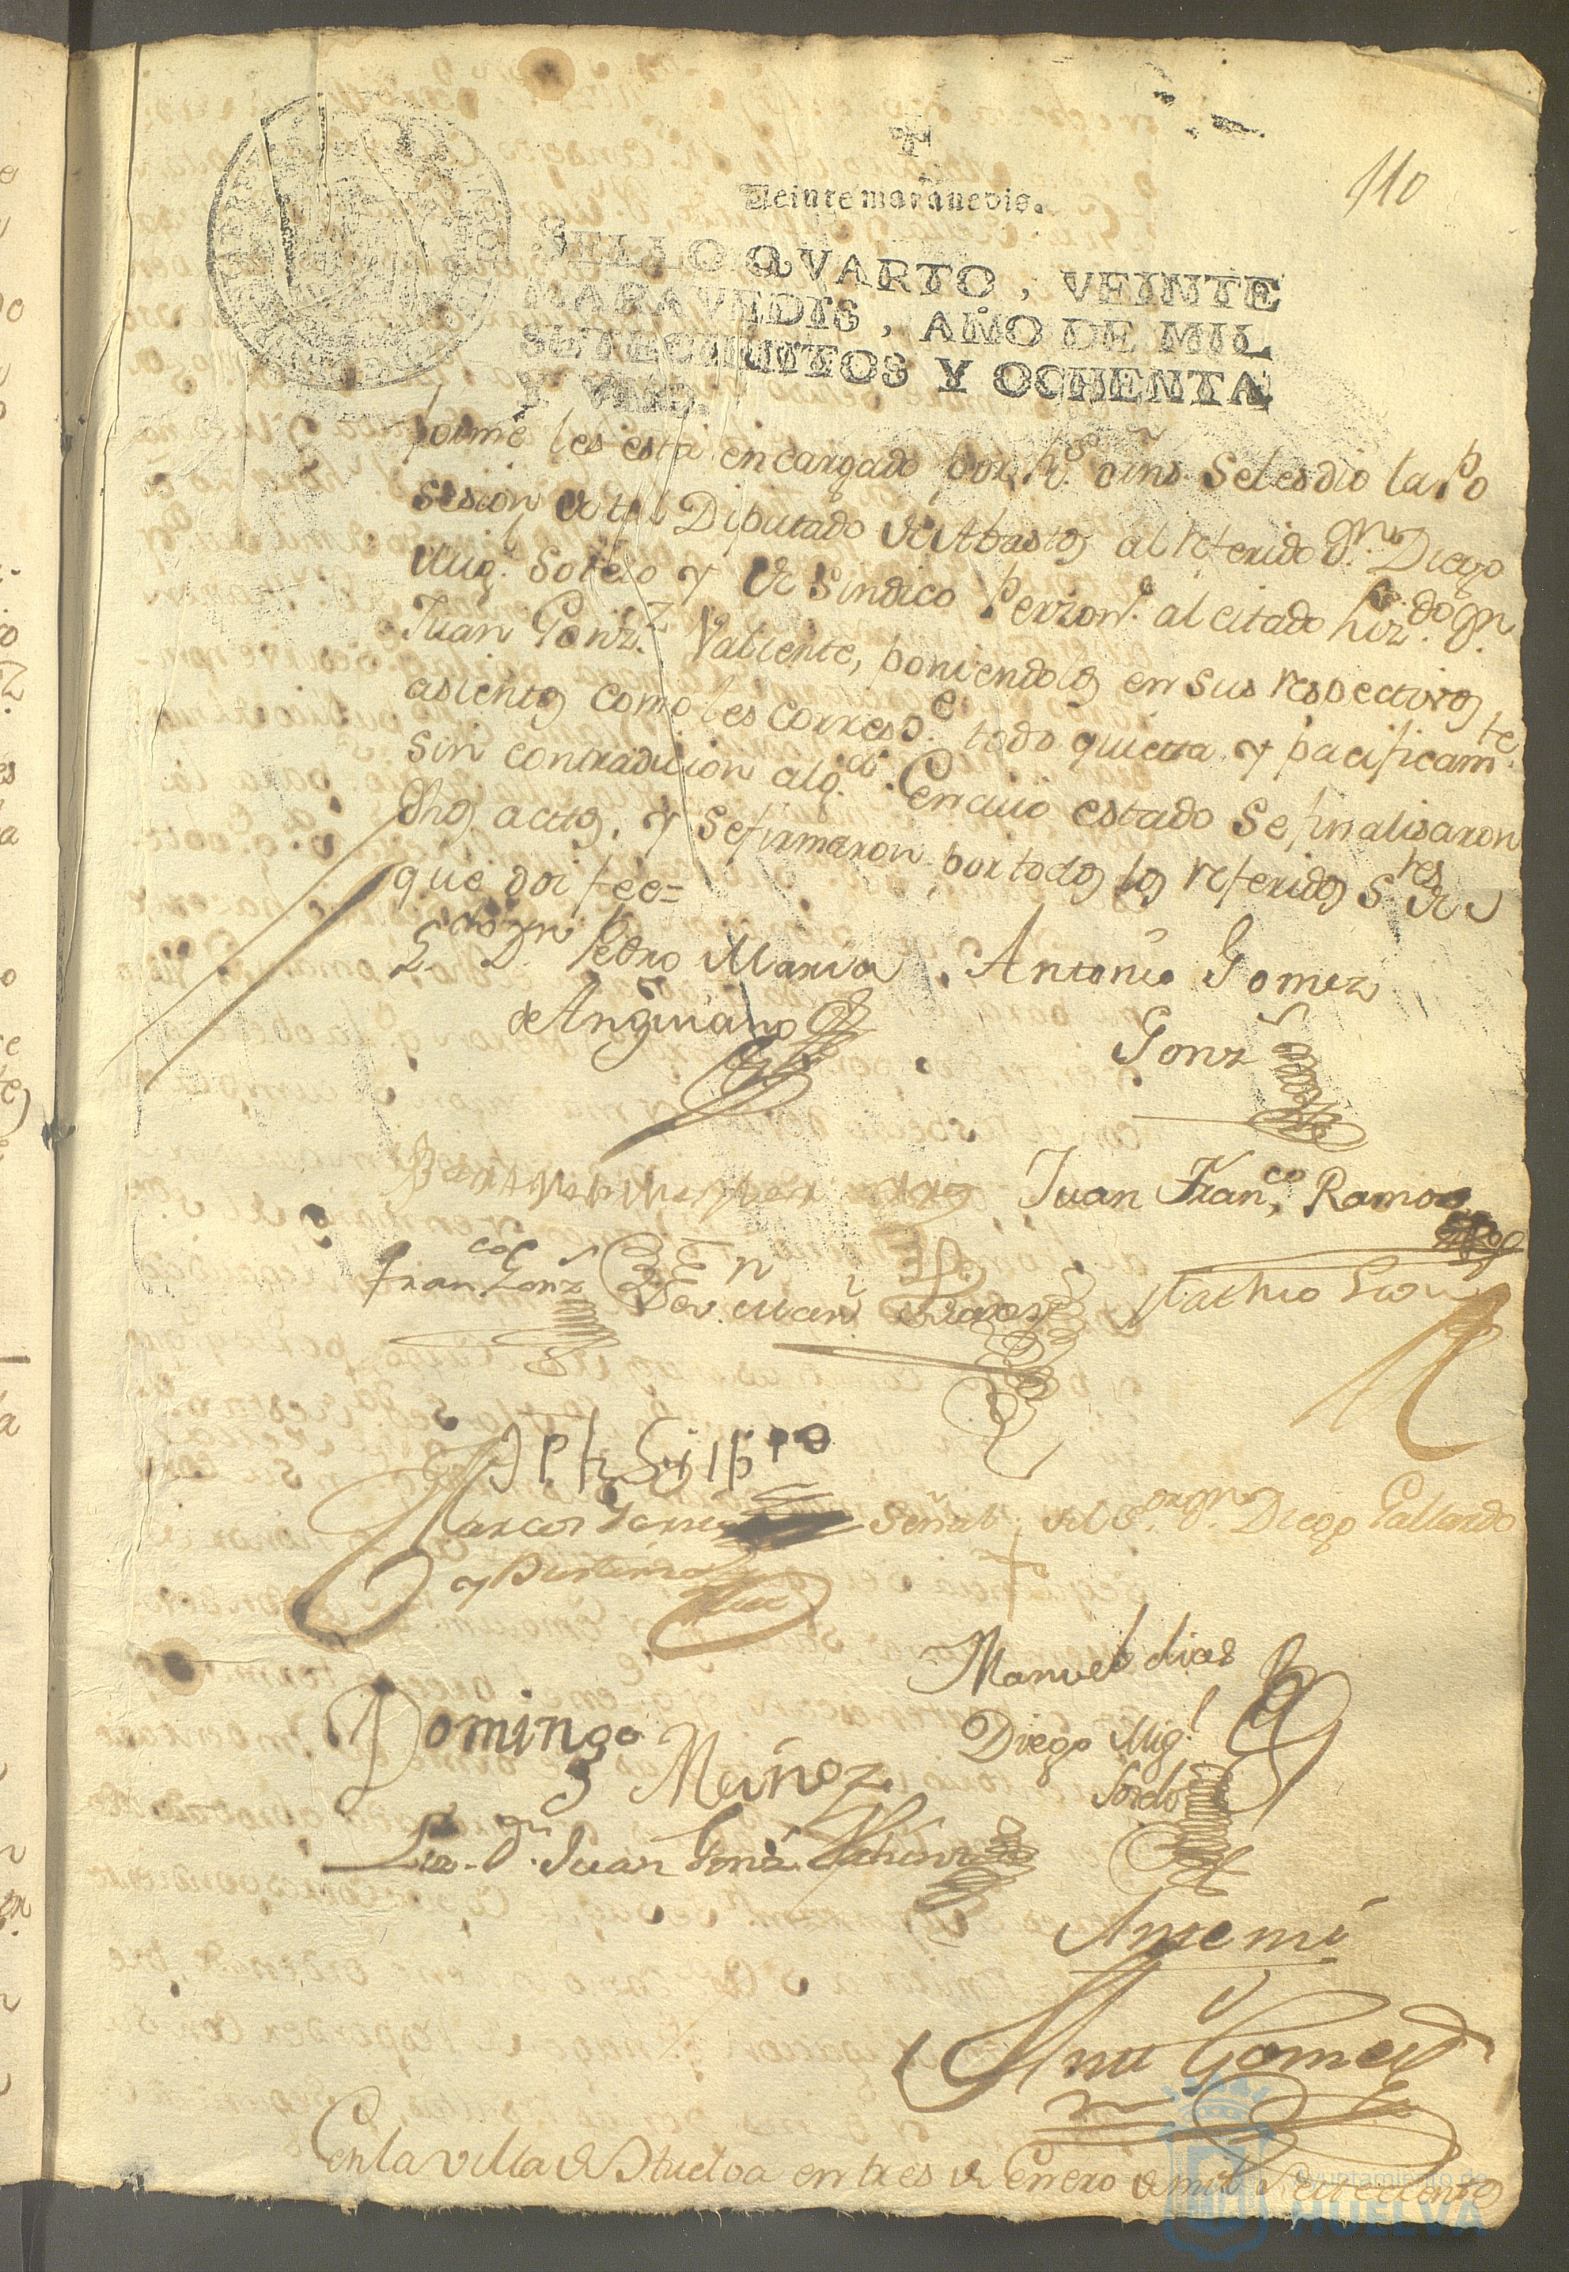 110
Veinte marauedis.
SELLO QVARTO, VEINTE
MARAVEDIS, AÑO DE MIL
SETECIENTOS Y OCHENTA
Y VNO.
forme les está encargado por Rs. orns. Seles dio la Po
sesion de tal Diputado de Abastos al referido Dn. Diego
Migl. Sotelo y de Sindico Personero. al citado Lizdo. Dn.
Juan Gonzz. Valiente, poniendolos en sus respectivos
asientos como les corresde. todo quieta, y pacificamte.
sin contradicion algª. En cuio estado se finalisaron
dhos actos, y se firmaron por todos los referidos Sres. de
que doi fee=
Ldo. Dn. Pedro Maria
de Anguiano
Antonio Gomez
Gonz
Juan Franco. Ramos
Franco. Gonz
Manl. Suarez
Marcos
y Bustamante
Señal del Sr. Dn. Diego Gallardo
+
Manuel dias
Domingo
Muñoz
Diego Migl.
Sotelo
Lizdo. Dn. Juan Gonz. Valiente
Antemi
Antt. Gomez
En la villa de Huelva en tres de Enero de mil Setecientos
Ayuntamiento de
HUELVA